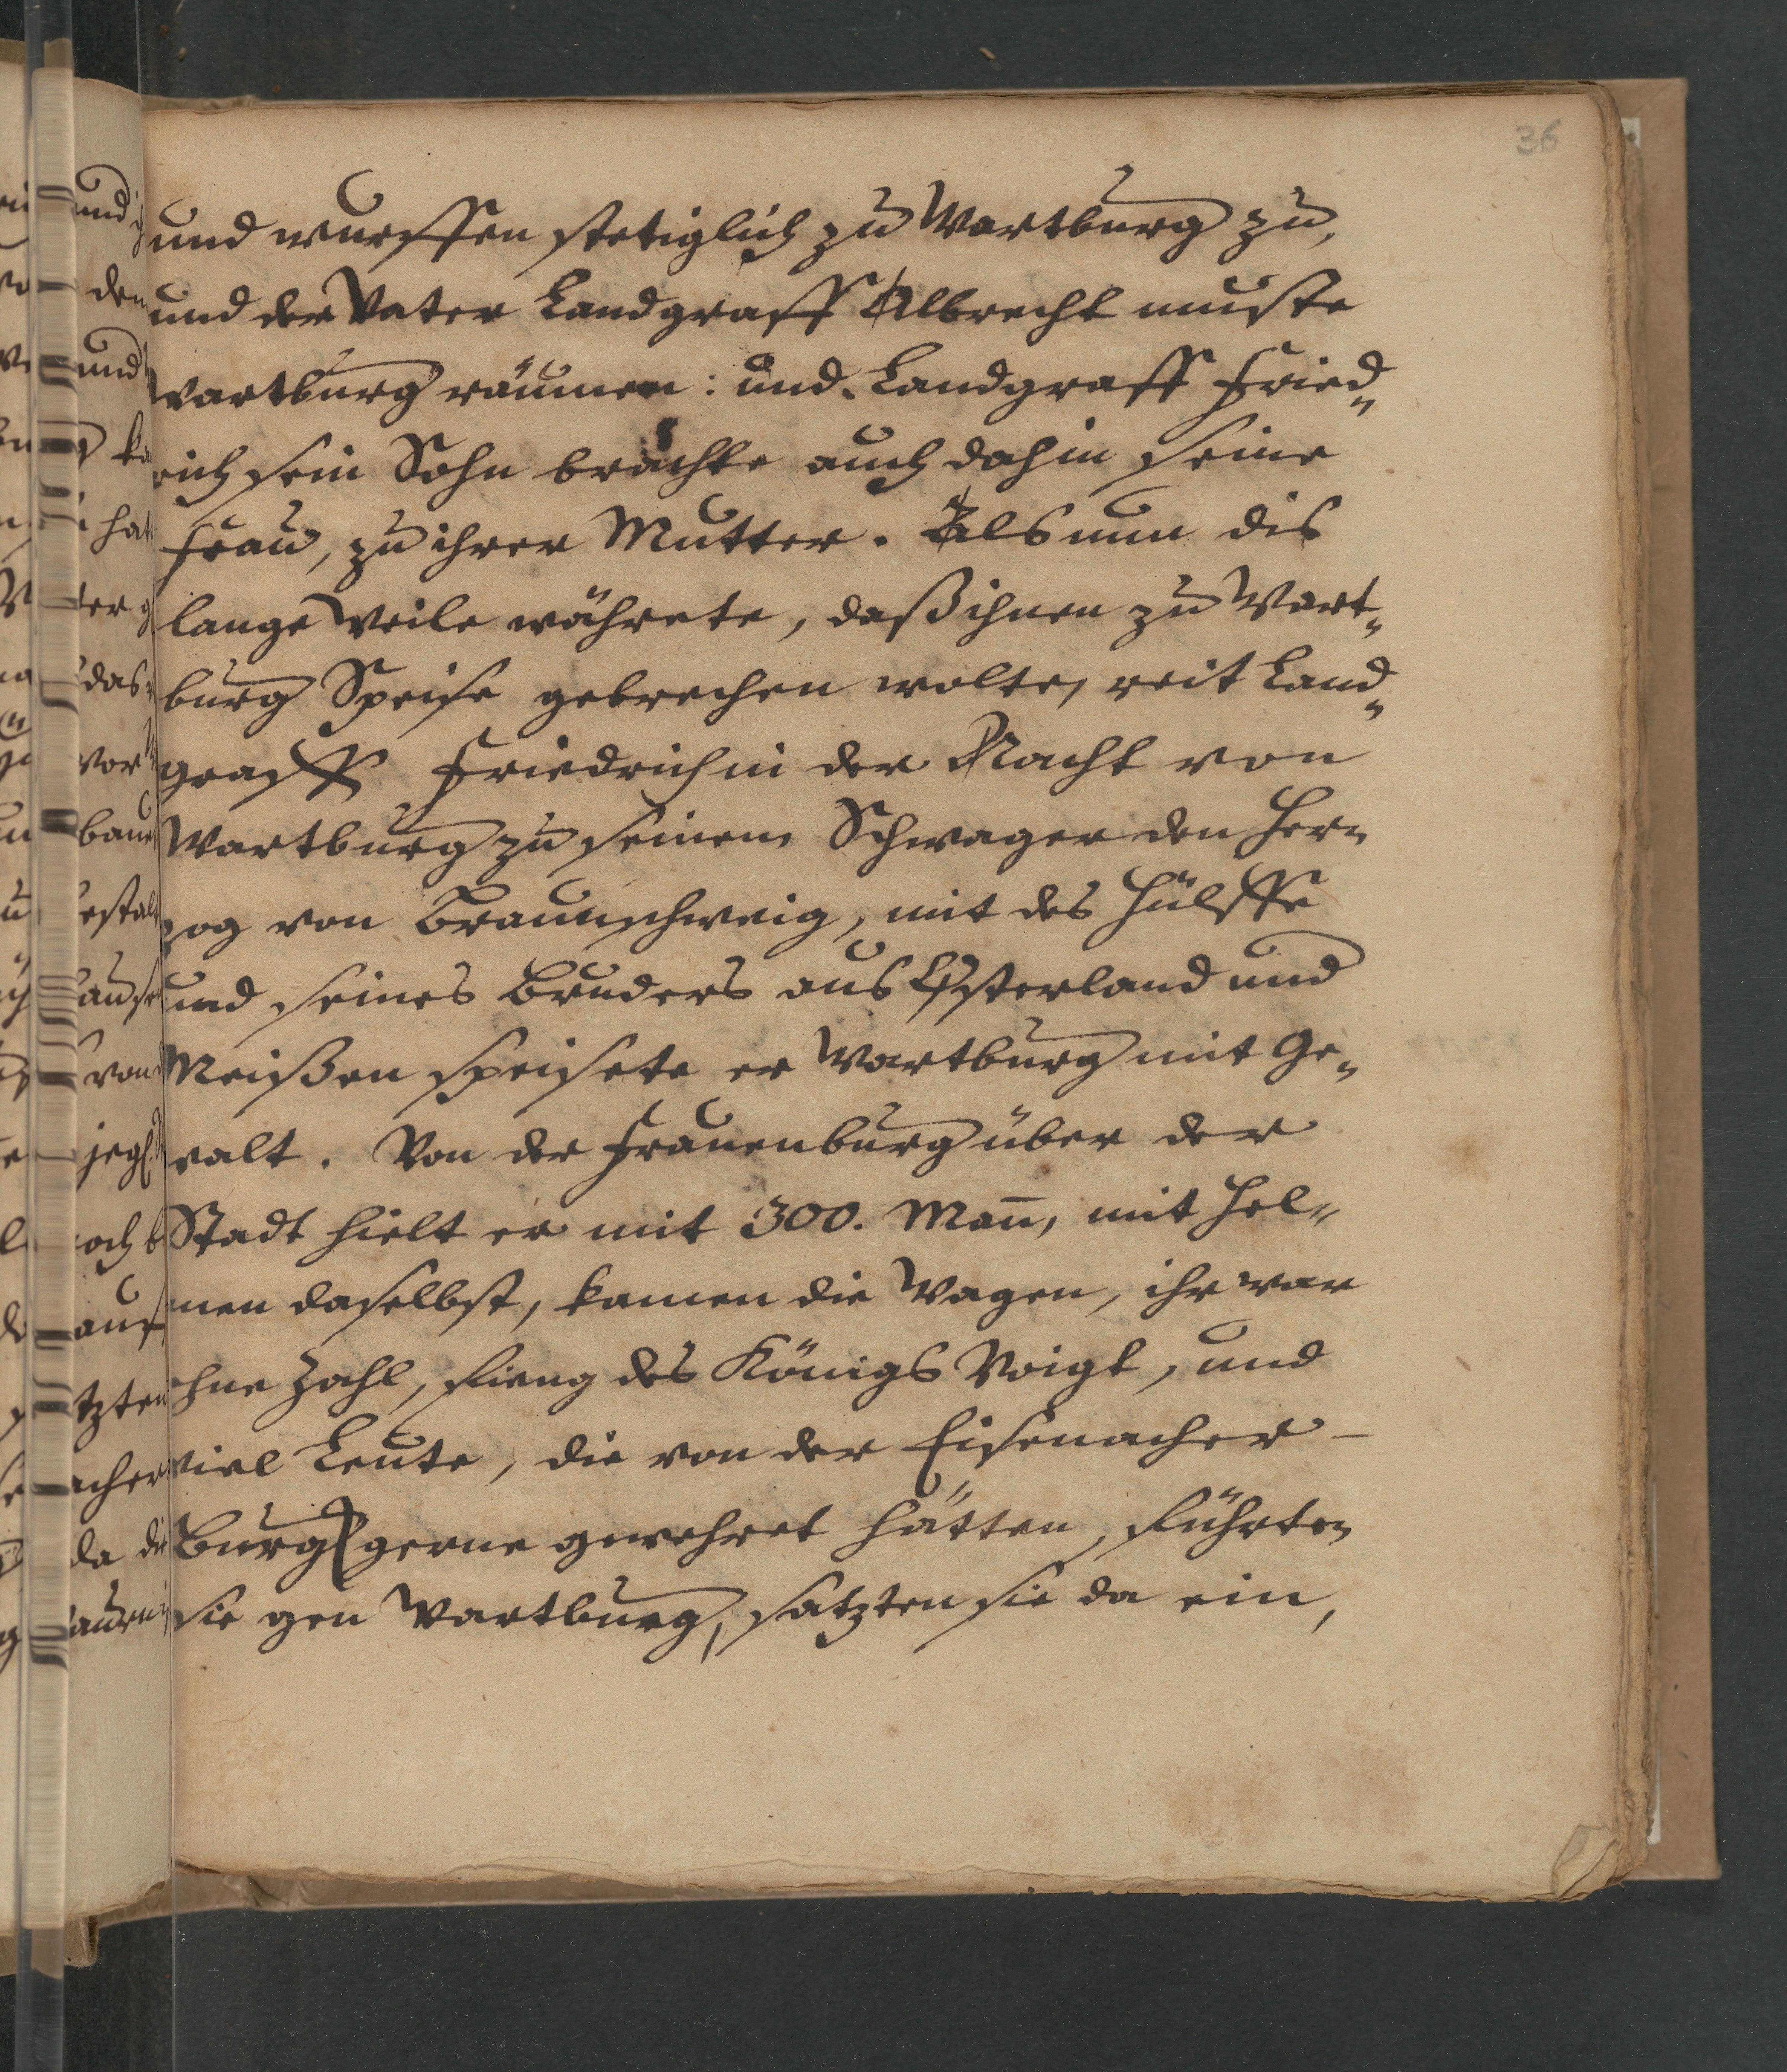 36
und wurffen stetiglich zu Wartburg zu,
und der Vater Landgraff Albrecht muste
Wartburg räumen: und Landgraff Fried„
rich sein Sohn brachte auch dahin seine
Frau, zu ihrer Mutter. Als nun dis
lange Weile währete, daß ihnen zu Wart„
burg Speise gebrechen wolte, reit Land„
graff Friedrich in der Nacht von
Wartburg zu seinem Schwager den Her„
zog von Braunschweig, mit des Hülffe
und seines Bruders aus Osterland und
Meißen speisete er Wartburg mit Ge„
walt. Von der Frauenburg über der
Stadt hielt er mit 300. Mañ, mit Hel„
men daselbst, kamen die Wagen, ihr war
ohne Zahl, fieng des Königs Voigt, und
viel Leute, die von der Eisenacher -
Burg gerne gewehret hätten, führten
sie gen Wartburg, satzten sie da ein,